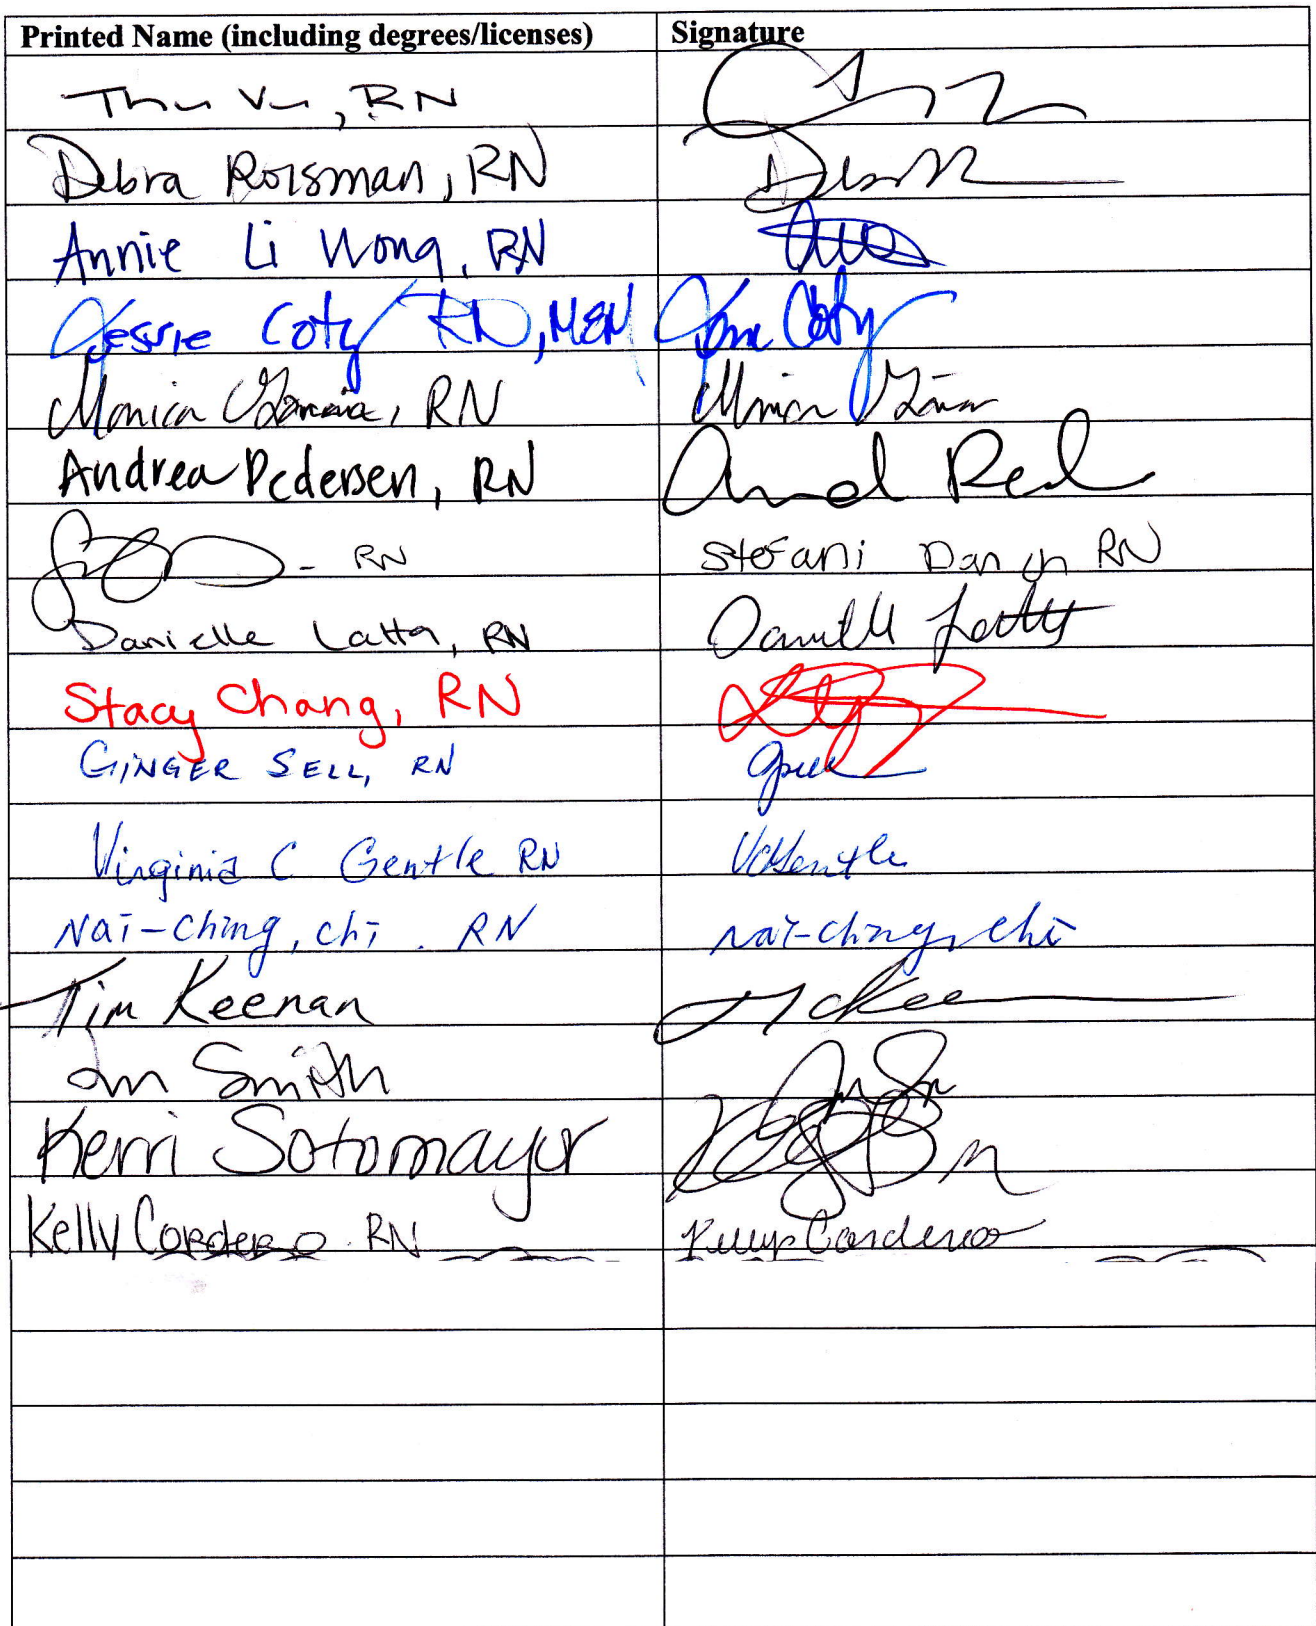 Printed Name (including degrees/licenses) Signature
Thu Vu, RN
Debra Roisman, RN
Annie Li Wong, RN
Jessie Coty RN, MSN Coty
Monica Garcia, RN
Andrea Pedersen, RN
- RN Stefani Dang RN
Danielle Latta, RN Danielle Latta
Stacy Chang, RN
GINGER SELL, RN
Virginia C Gentle RN VCGentle
Nai-Ching, chi . RN Nai-ching, chi
Tim Keenan
Smith
Kerri Sotomayor
Kelly Cordero RN Kelly Cordero